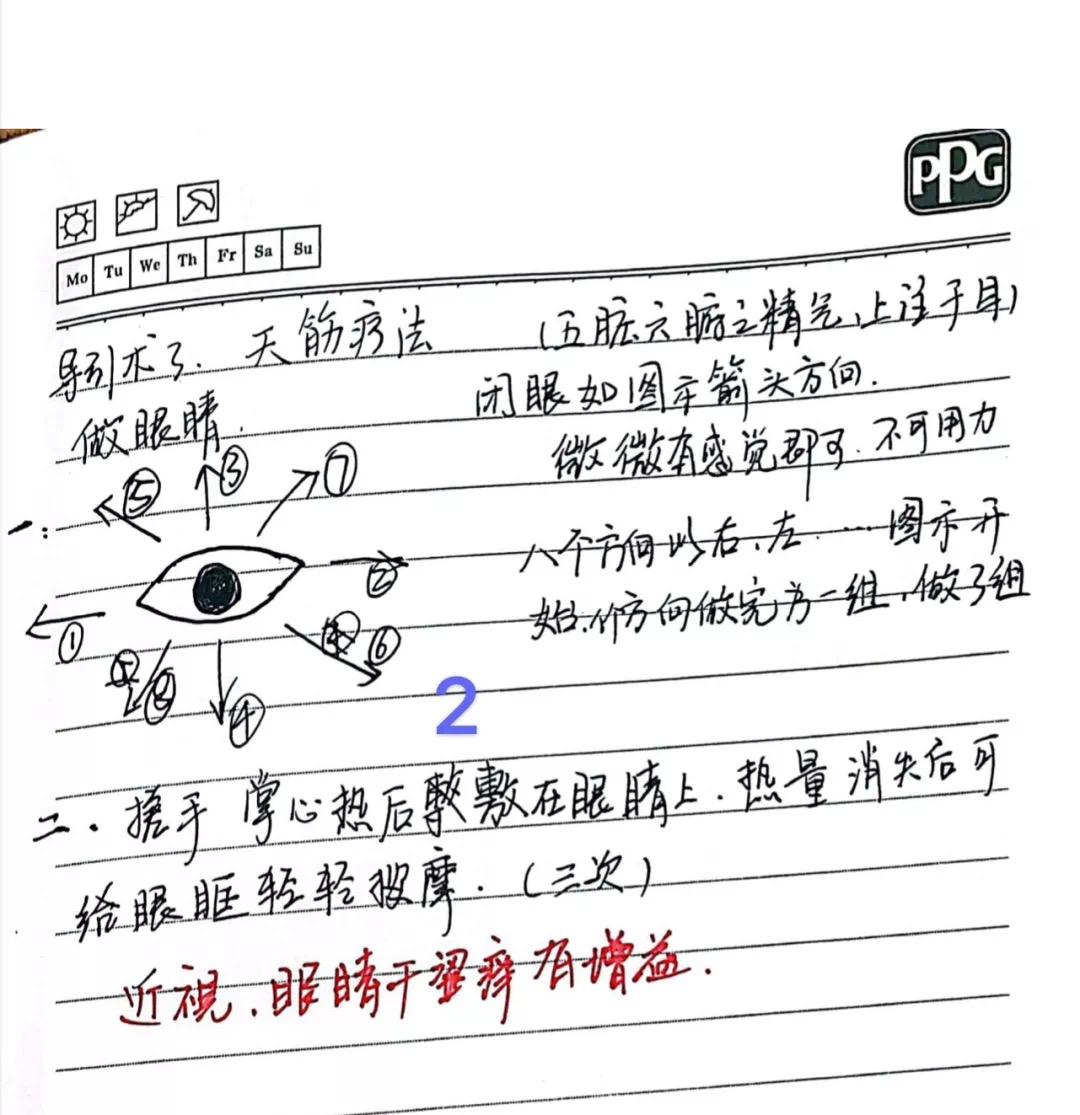 PPG
Mo Tu We Th Fr Sa Su
导引术3. 天筋疗法 (五脏六腑之精气,上注于目)
做眼睛. 闭眼如图示箭头方向.
微微有感觉即可. 不可用力
一: ⑤ ③ ⑦
八个方向以右、左.…图示开
②
始.个方向做完为一组.做3组
① ⑥
⑧ ④
2
二. 搓手 掌心热后敷在眼睛上. 热量消失后可
给眼眶轻轻按摩. (三次)
近视.眼睛干涩痒有增益.